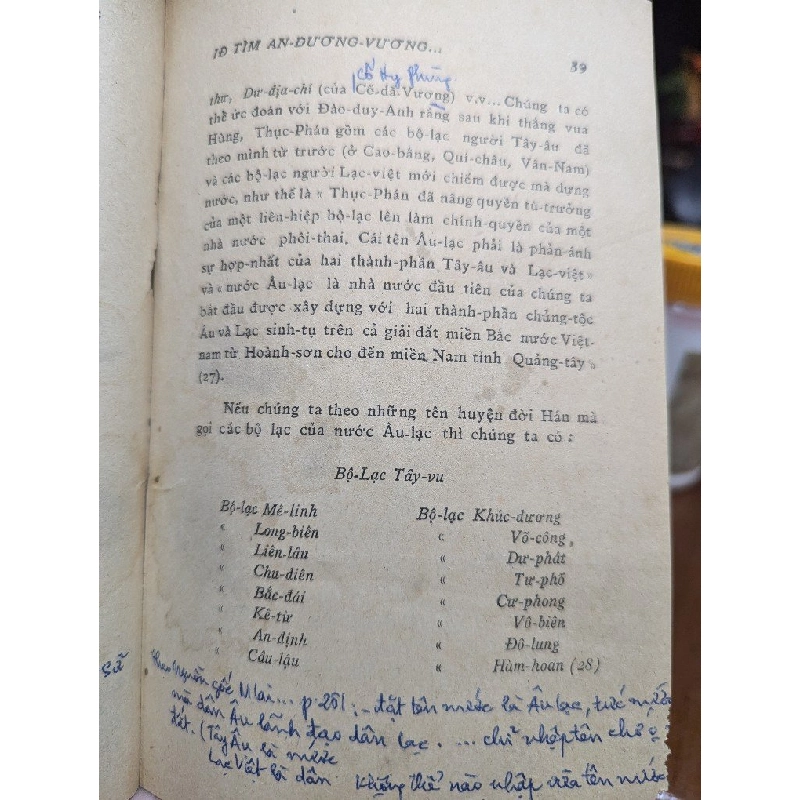 ĐI TÌM AN-DƯƠNG-VƯƠNG... 39
cổ hy phùng
thư, Dư-địa-chí (của Cố-dã-Vương) v.v... Chúng ta có
thể ức đoán với Đào-duy-Anh rằng sau khi thắng vua
Hùng, Thục-Phán gồm các bộ-lạc người Tây-âu đã
theo mình từ trước (ở Cao-bằng, Qui-châu, Vân-Nam)
và các bộ-lạc người Lạc-việt mới chiếm được mà dựng
nước, như thế là « Thục-Phán đã nâng quyền tù-trưởng
của một liên-hiệp bộ-lạc lên làm chính-quyền của một
nhà nước phôi-thai. Cái tên Âu-lạc phải là phản-ánh
sự hợp-nhất của hai thành-phần Tây-âu và Lạc-việt»
và « nước Âu-lạc là nhà nước đầu tiên của chúng ta
bắt đầu được xây dựng với hai thành-phần chủng-tộc
Âu và Lạc sinh-tụ trên cả giải đất miền Bắc nước Việt-
nam từ Hoành-sơn cho đến miền Nam tỉnh Quảng-tây»
(27).
Nếu chúng ta theo những tên huyện đời Hán mà
gọi các bộ lạc của nước Âu-lạc thì chúng ta có :
Bộ-Lạc Tây-vu
Bộ-lạc Mê-linh Bộ-lạc Khúc-dương
« Long-biên « Võ-công,
« Liên-lâu « Dư-phát
« Chu-diên « Tư-phố
« Bắc-đái « Cư-phong
« Kê-từ « Vô-biên
« An-định « Đô-lung
« Câu-lậu « Hàm-hoan (28)
theo Nguồn gốc Mlai... p.251 : - đặt tên nước là Âu lạc, tức nước
mà dân Âu lãnh đạo dân lạc. ... chỉ nhập tên chỗ
đất. (Tây Âu là nước
Lạc Việt là dân Không thể nào nhập vừa tên nước